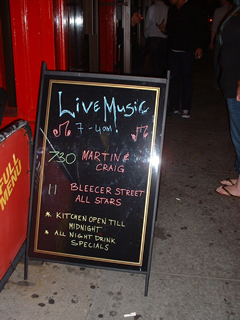 Live Music
7-4am!
730 MARTIN &
CRAIG
11 BLEECER STREET
ALL STARS
* KITCHEN OPEN TILL
MIDNIGHT
* ALL NIGHT DRINK
SPECIALS
FULL
MENU